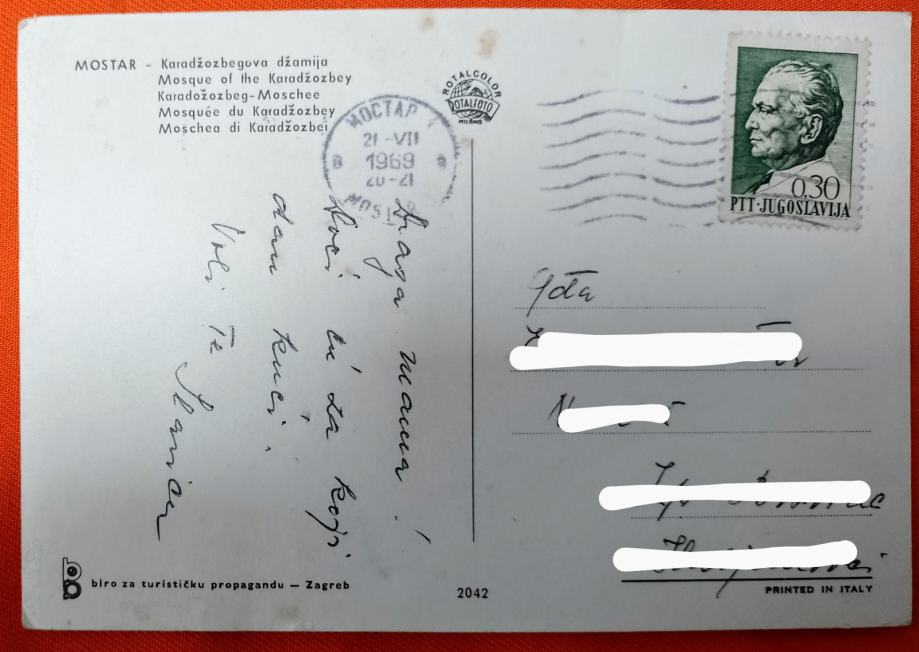 MOSTAR - Karadžozbegova džamija
Mosque of the Karadžozbey
Karadožozbeg-Moschee
Mosquée du Karadžozbey
Moschea di Karadžozbei
ROTALCOLOR
ROTALFOTO
MILANO
МОСТАР 1
21-VII
1969
20-21
MOSTAR
0.30
PTT·JUGOSLAVIJA
Draga mama!
Doći ću za koji
dan kući.
Voli Te
Gđa
biro za turističku propagandu — Zagreb
2042
PRINTED IN ITALY